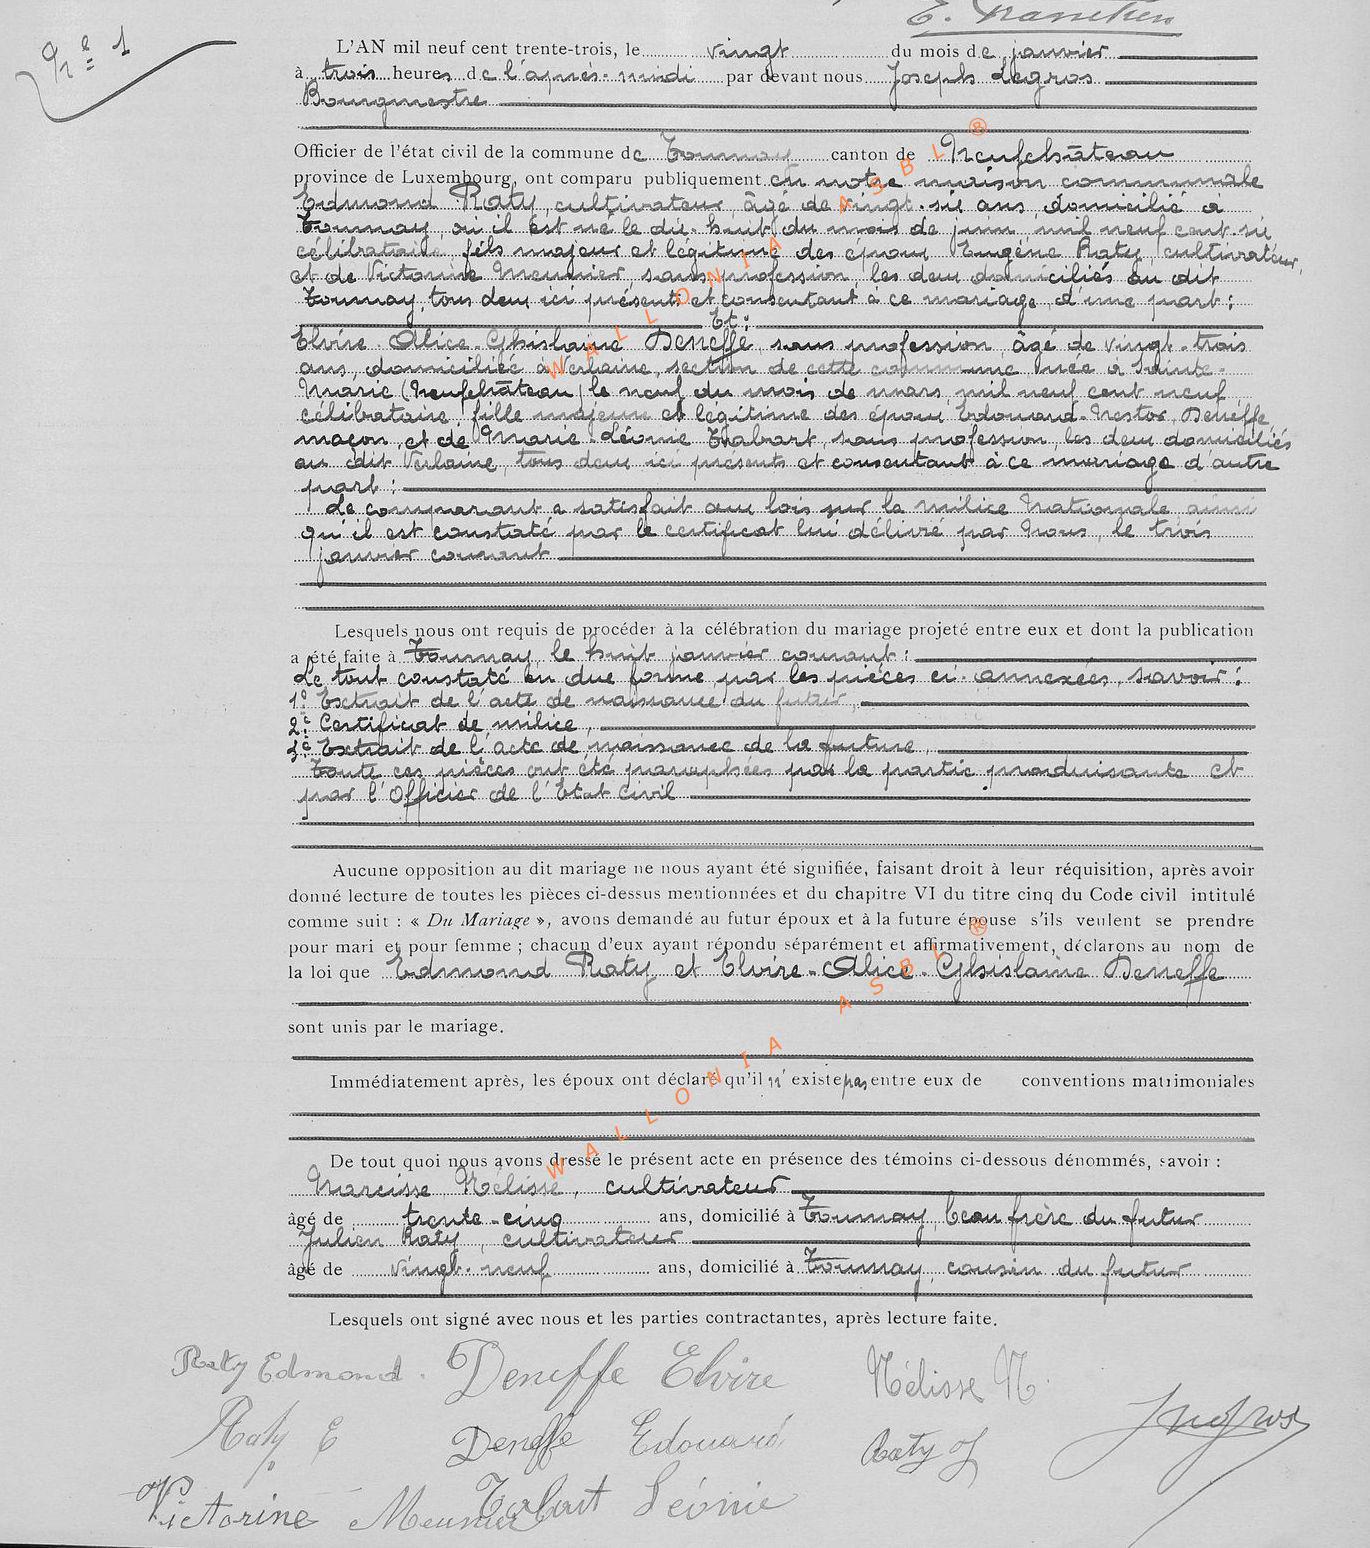 Nº 1
L'AN mil neuf cent trente-trois, le vingt du mois de janvier
à trois heures de l'après-midi par devant nous Joseph Legros
Bourgmestre
Officier de l'état civil de la commune de Tournay canton de Neufchâteau
province de Luxembourg, ont comparu publiquement en notre maison communale
Edmond Raty, cultivateur, âgé de vingt-six ans domicilié à
Tournay, où il est né le dix-huit du mois de juin mil neuf cent six
célibataire, fils majeur et légitime des époux Eugène Raty, cultivateur,
et de Victorine Meunier, sans profession, les deux domiciliés au dit
Tournay, tous deux ici présents et consentant à ce mariage d'une part :
Et :
Elvire-Alice-Ghislaine Deneffe, sans profession, âgé de vingt-trois
ans, domiciliée à Verlaine, section de cette commune, née à Sainte-
Marie (Neufchâteau) le neuf du mois de mars mil neuf cent neuf,
célibataire, fille majeure et légitime des époux Edouard-Nestor Deneffe,
maçon, et de Marie-Léonie Tabart, sans profession, les deux domiciliés
au dit Verlaine, tous deux ici présents et consentant à ce mariage d'autre
part :
Le comparant a satisfait aux lois sur la milice nationale ainsi
qu'il est constaté par le certificat lui délivré par Nous, le trois
janvier courant
Lesquels nous ont requis de procéder à la célébration du mariage projeté entre eux et dont la publication
a été faite à Tournay, le huit janvier courant :
Le tout constaté en due forme par les pièces ci-annexées, savoir :
1º Extrait de l'acte de naissance du futur,
2º Certificat de milice,
3º Extrait de l'acte de naissance de la future,
Toute ces pièces ont été paraphées par la partie produisante et
par l'Officier de l'Etat civil
Aucune opposition au dit mariage ne nous ayant été signifiée, faisant droit à leur réquisition, après avoir
donné lecture de toutes les pièces ci-dessus mentionnées et du chapitre VI du titre cinq du Code civil intitulé
comme suit : « Du Mariage », avons demandé au futur époux et à la future épouse s'ils veulent se prendre
pour mari et pour femme ; chacun d'eux ayant répondu séparément et affirmativement, déclarons au nom de
la loi que Edmond Raty et Elvire-Alice-Ghislaine Deneffe
sont unis par le mariage.
Immédiatement après, les époux ont déclaré qu'il n'existe pas entre eux de conventions matrimoniales
De tout quoi nous avons dressé le présent acte en présence des témoins ci-dessous dénommés, savoir :
Narcisse Nélisse, cultivateur
âgé de trente-cinq ans, domicilié à Tournay, beau frère du futur
Julien Raty, cultivateur
âgé de vingt-neuf ans, domicilié à Tournay, cousin du futur
Lesquels ont signé avec nous et les parties contractantes, après lecture faite.
Raty Edmond. Deneffe Elvire Nélisse N.
Raty E Deneffe Edouard Raty J
Victorine Meunier Tabart Léonie
WALLONIA ASBL ®
WALLONIA ASBL ®